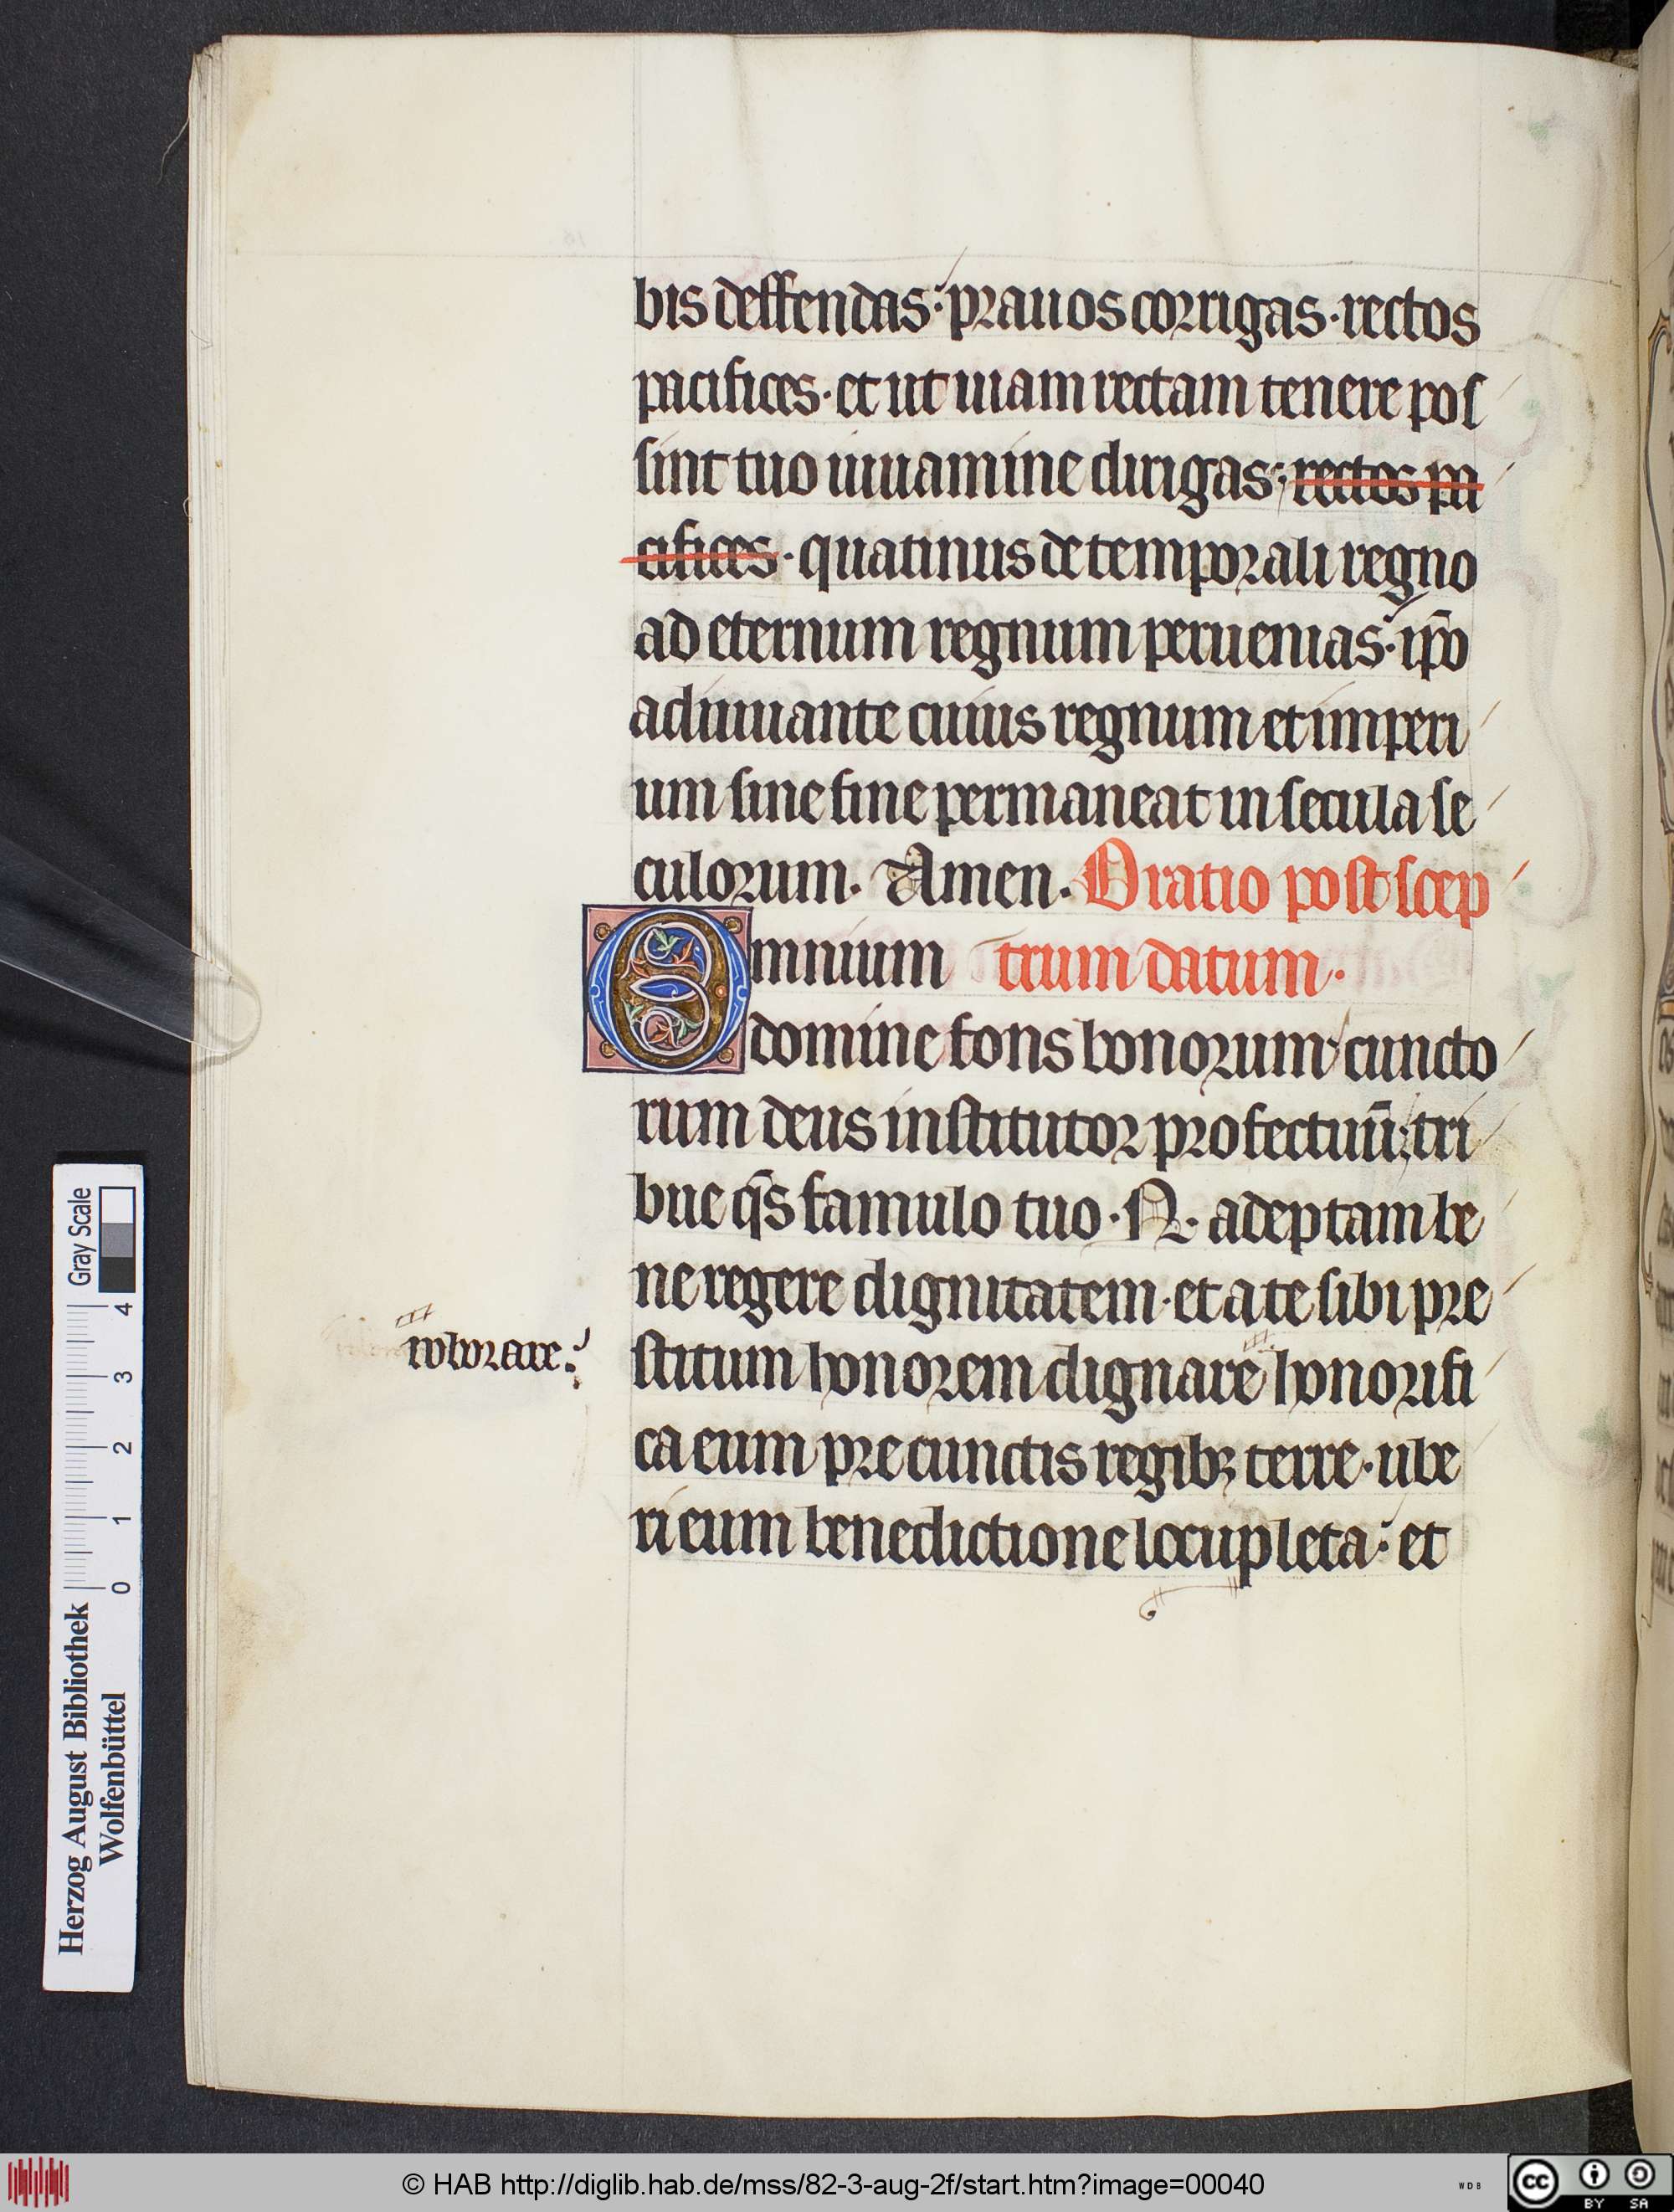 bis deffendas· prauos corrigas· rectos
pacifices· et ut uiam rectam tenere pos
sint tuo iuuamine dirigas· rectos pa
cifices· quatinus de temporali regno
ad eternum regnum peruenias· ip̄o
adiuuante cuius regnum et imperi
um sine fine permaneat in secula se
culorum. Amen. Oratio post scep
Omnium trum datum.
domine fons bonorum cuncto
rum deus institutor profectuū; tri
bue q̄s famulo tuo· N· adeptam be
ne regere dignitatem· et a te sibi pre
roborare·
stitum honorem dignare honorifi
ca eum pre cunctis regibꝫ terre· ube
ri eum benedictione locupleta· et
Herzog August Bibliothek
Wolfenbüttel
0 1 2 3 4
Gray Scale
© HAB http://diglib.hab.de/mss/82-3-aug-2f/start.htm?image=00040
WDB
CC BY SA